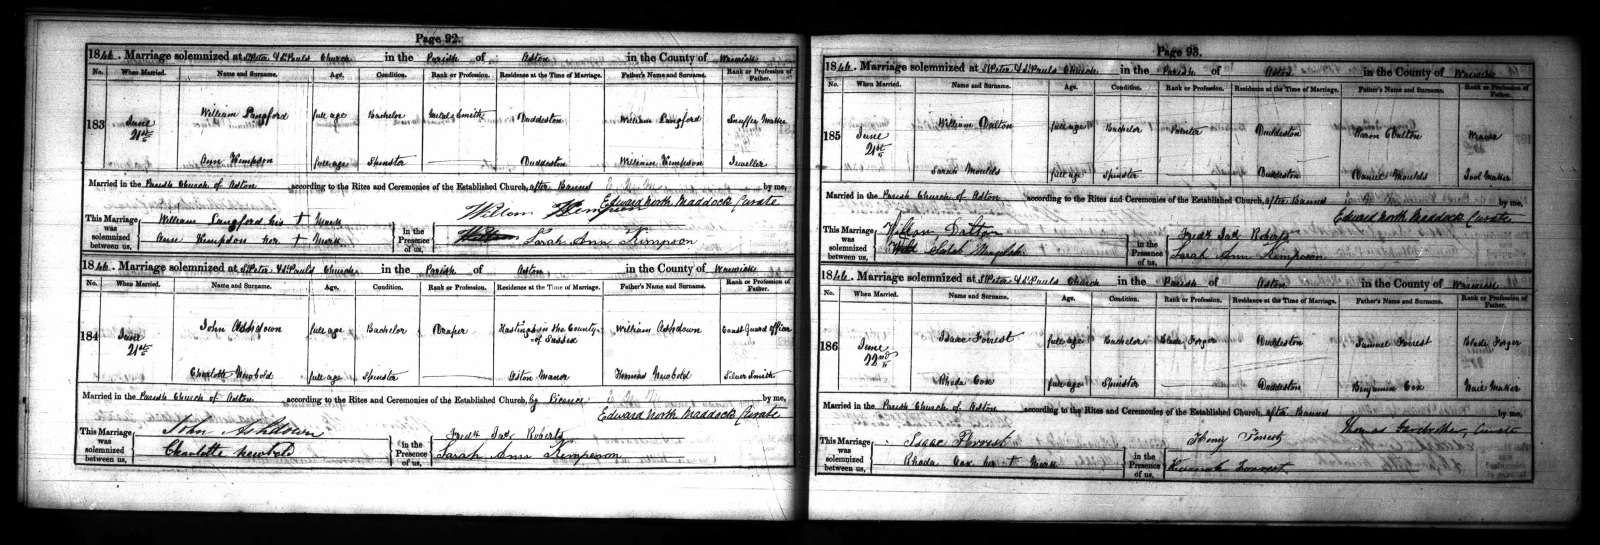 Page 92.
1846. Marriage solemnized at St Peter & St Pauls Church in the Parish of Aston in the County of Warwick
No. When Married. Name and Surname. Age. Condition. Rank or Profession. Residence at the Time of Marriage. Father's Name and Surname. Rank or Profession of Father.
183 June 21st William Langford full age Bachelor Metal Smith Duddeston William Langford Snuffer Maker
Ann Kempson full age Spinster Duddeston William Kempson Jeweller
Married in the Parish Church of Aston according to the Rites and Ceremonies of the Established Church, after Banns by me,
Edward North Maddock Curate
This Marriage was solemnized between us, William Langford his + Mark
Ann Kempson her + Mark
in the Presence of us, William Kempson
Sarah Ann Kempson
1846. Marriage solemnized at St Peter & St Pauls Church in the Parish of Aston in the County of Warwick
No. When Married. Name and Surname. Age. Condition. Rank or Profession. Residence at the Time of Marriage. Father's Name and Surname. Rank or Profession of Father.
184 June 21st John Ashdown full age Bachelor Draper Hastings in the County of Sussex William Ashdown Coast Guard Officer
Charlotte Newbold full age Spinster Aston Manor Thomas Newbold Silver Smith
Married in the Parish Church of Aston according to the Rites and Ceremonies of the Established Church, by Licence by me,
Edward North Maddock Curate
This Marriage was solemnized between us, John Ashdown
Charlotte Newbold
in the Presence of us, Fredk Jas Roberts
Sarah Ann Kempson
Page 93.
1846. Marriage solemnized at St Peter & St Pauls Church in the Parish of Aston in the County of Warwick
No. When Married. Name and Surname. Age. Condition. Rank or Profession. Residence at the Time of Marriage. Father's Name and Surname. Rank or Profession of Father.
185 June 21st William Dalton full age Bachelor Painter Duddeston Aaron Dalton
Sarah Moulds full age Spinster Duddeston Daniel Moulds Tool Maker
Married in the Parish Church of Aston according to the Rites and Ceremonies of the Established Church, after Banns by me,
Edward North Maddock Curate
This Marriage was solemnized between us, William Dalton
Sarah
in the Presence of us, Fredk Jas Roberts
Sarah Ann Kempson
1846. Marriage solemnized at St Peter & St Pauls Church in the Parish of Aston in the County of Warwick
No. When Married. Name and Surname. Age. Condition. Rank or Profession. Residence at the Time of Marriage. Father's Name and Surname. Rank or Profession of Father.
186 June 22nd Isaac Forrest full age Bachelor Blade Forger Duddeston Samuel Forrest Blade Forger
Rhoda Cox full age Spinster Duddeston Benjamin Cox Nail Maker
Married in the Parish Church of Aston according to the Rites and Ceremonies of the Established Church, after Banns by me,
Thomas Curate
This Marriage was solemnized between us, Isaac Forrest
Rhoda Cox her + Mark
in the Presence of us, Henry Forrest
Forrest